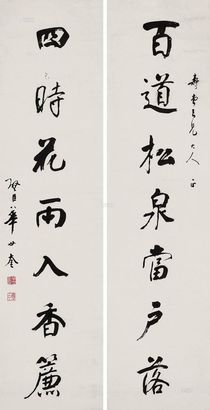 百道松泉當戶落
大人 正
四時花雨入香簾
華世奎